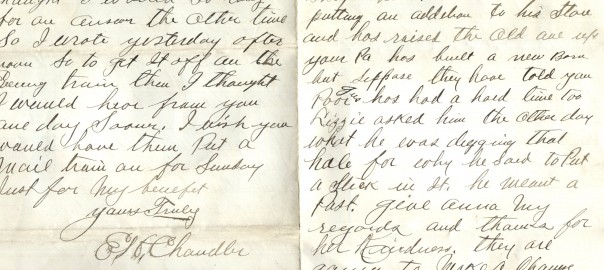 for an answer the other time
So I wrote yesterday after
noon So to get It off on the
Evening train then I thought
I would hear from you
one day Sooner. I wish you
would have them Put a
Mail train on for Sunday
Just for My benefit
yours Truly
Chandler
putting an addition to his Store
and has raised the old one up
your Pa has built a new Barn
but suppose they have told you
Poor Tim has had a hard time too
Lizzie asked him the other day
what he was digging that
hole for why he Said to Put
a Stick in It. he meant a
Post. give anna My
regards and thanks for
her Kindness. they are
going to Make a Change